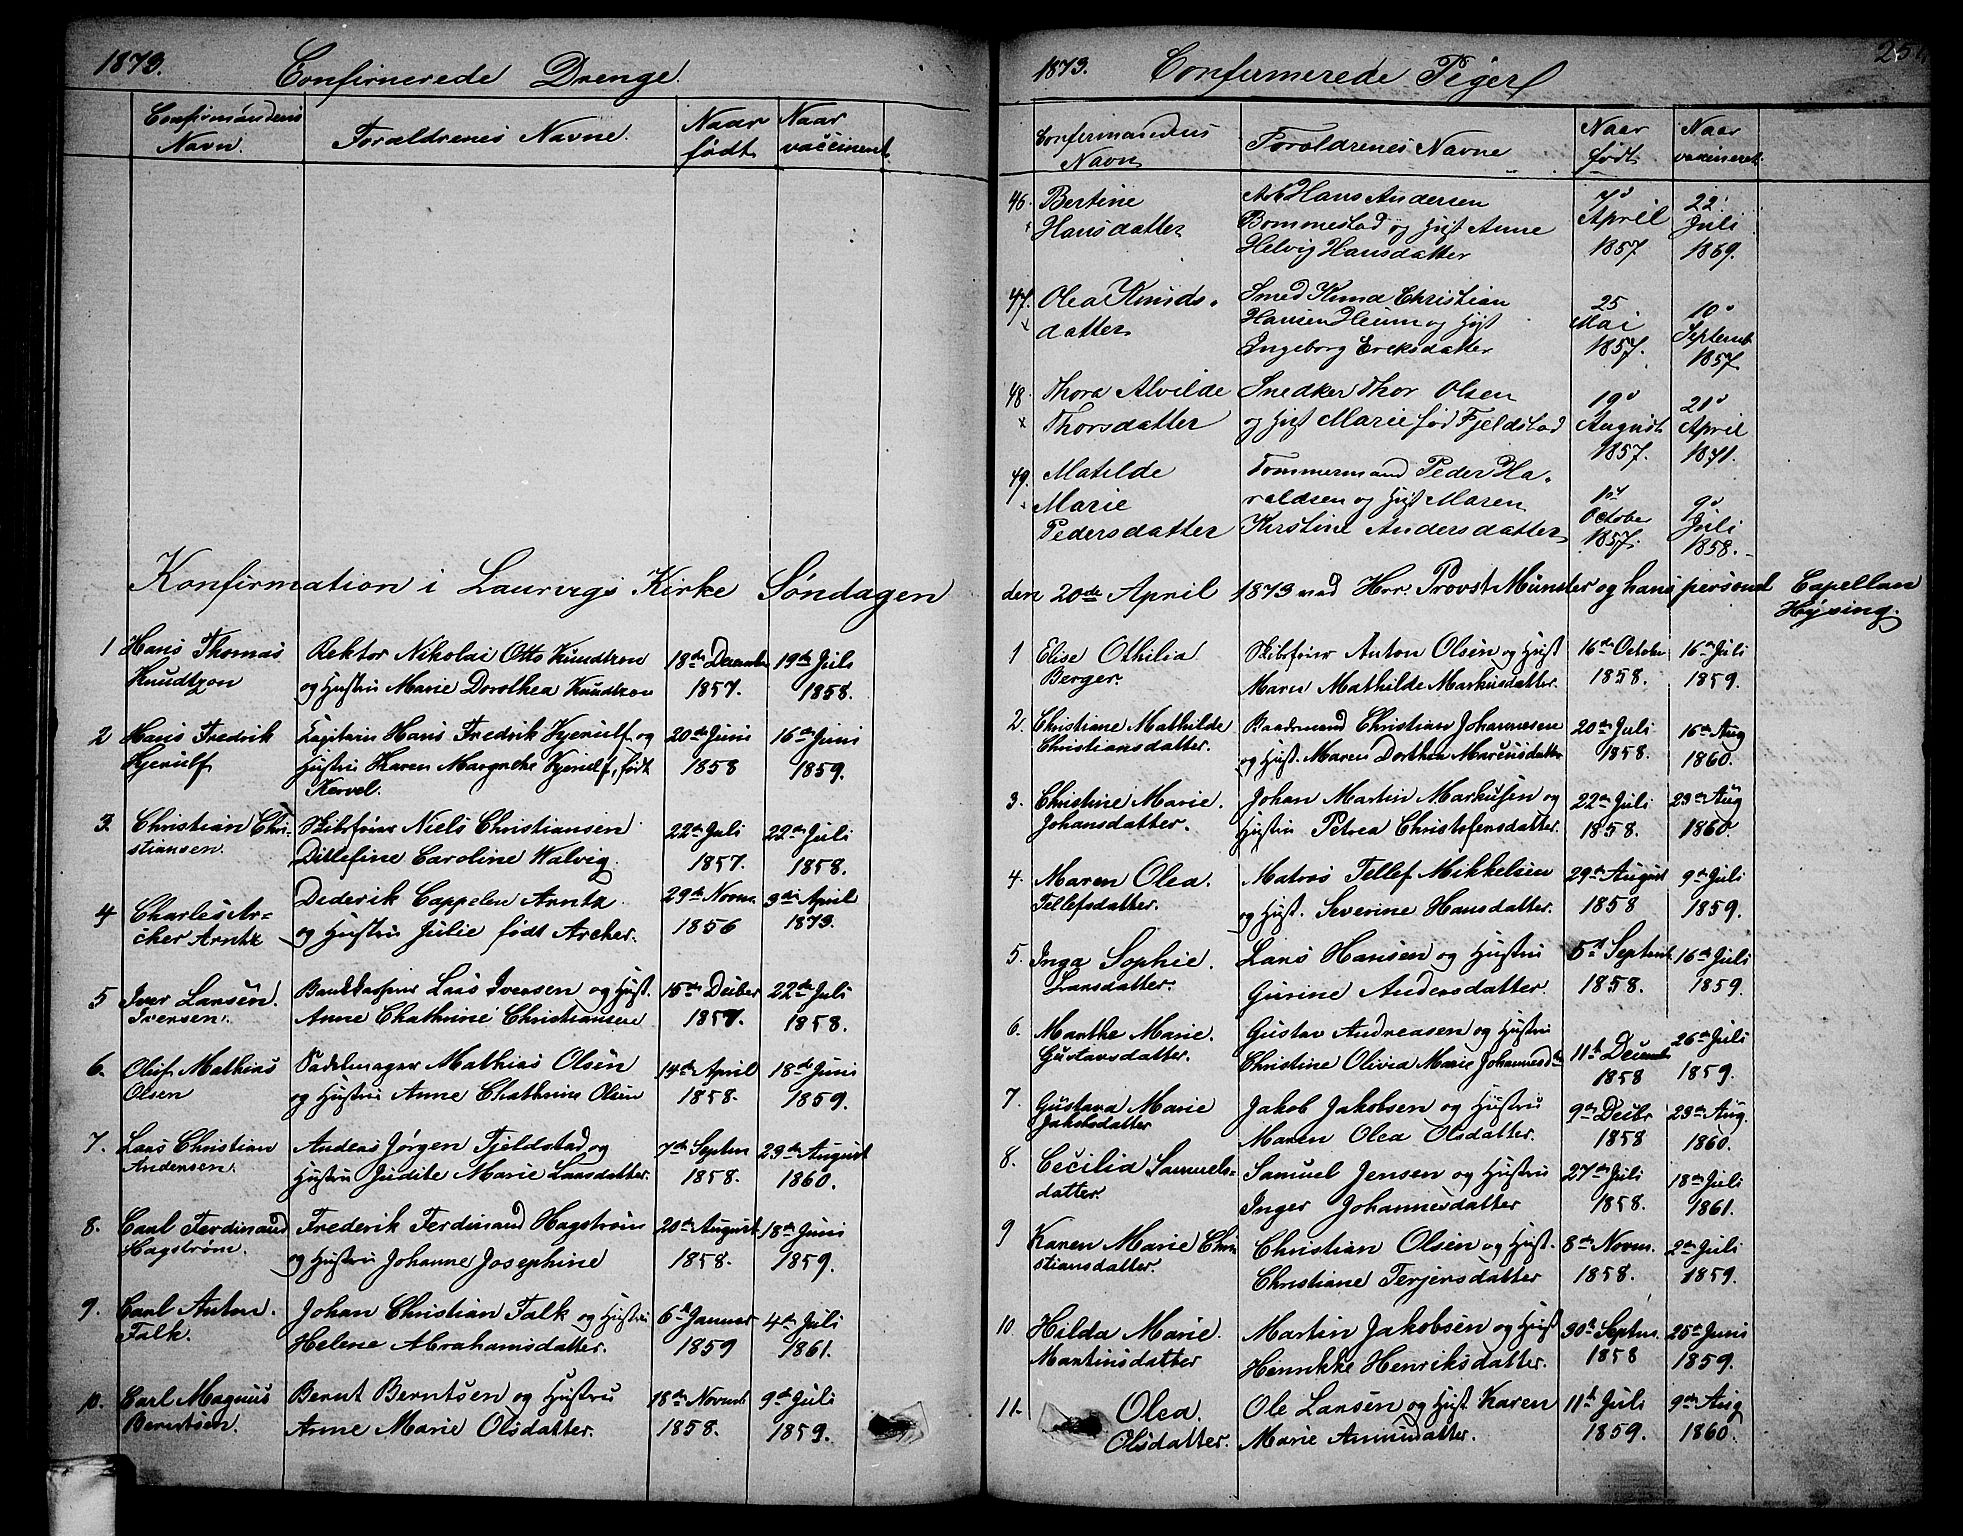 1873. Confirmerede Drenge.
Confirmandens Navn.
Forældrenes Navne.
Naar født
Naar vaccineret
Konfirmation i Laurvigs Kirke Søndagen
1 Hans Thomas Knudtzon
Rektor Nikolai Otto Knudtzon
og Hustru Marie Dorothea Knudtzon
18de December 1857.
19de Juli 1858.
2 Hans Fredrik Kjerulf
Kapitain Hans Fredrik Kjerulf og
Hustru Karen Margrethe Kjerulf, født
20de Juni 1858
16de Juni 1859.
3. Christian Christiansen.
Niels Christiansen
Ditlefine Caroline Walvig.
22de Juli 1857.
22de Juli 1858.
4 Charles Archer Arntz
Dederik Cappelen Arntz
og Hustru Julie født Archer.
29de Novem. 1856
3die April 1873.
5 Iver Larsen Iversen.
Lars Iversen og Hust.
Anne Chathrine Christiansen
15de Decber 1857.
22de Juli 1858.
6. Oluf Mathias Olsen
Sadelmager Mathias Olsen
og Hustru Anne Chathrine Olsen
14de April 1858.
18de Juni 1859.
7. Lars Christian Andersen.
Anders Jørgen Fjeldstad og
Hustru Judite Marie Larsdatter.
7de Septem 1858.
23de August 1860.
8. Carl Ferdinand Hagstrøm.
Frederik Ferdinand Hagstrøm
og Hustru Johanne Josephine
20de August 1858.
18de Juni 1859.
9. Carl Anton. Falk.
Johan Christian Falk og Hustru
Helene Abrahamsdatter.
6te Januar 1859
4de Juli 1861.
10. Carl Magnus Berntsen.
Bernt Berntsen og Hustru
Anne Marie Olsdatter.
18de Novemb 1858.
9de Juli 1859.
1873. Confirmerede Piger
Confirmandens Navn
Forældrenes Navne
Naar født
Naar vaccineret
46. Bertine Hansdatter
Arb Hans Andersen
Bommestad og Hust Anne
Helvig Hansdatter
7d April 1857
22. Juli 1869.
47. Olea Knudsdatter
Smed Knud Christian
Hansen Heum og Hust
Ingeborg Ericksdatter
25 Mai 1857.
10d Septemb 1857
48. Thora Alvilde Thorsdatter
Snedker Thor Olsen
og Hust Marie fød Fjeldstad
19d August 1857.
21d April 1871.
49. Matilde Marie Pedersdatter
Tømmermand Peder Ha-
raldsen og Hust Maren
Kirstine Andersdatter
October 1857.
9d Juli 1858.-
den 20de April 1873 ved Hrr. Provst Münster og hans personel Capellan
Hysing.
1 Elise Othilia Berger.
Anton Olsen og Hust
Maren Mathilde Markusdatter.
16de October 1858.
16de Juli 1859.
2. Christiane Mathilde Christiansdatter.
Baadsmand Christian Johannesen
og Hust. Maren Dorthea Marcusdatter
20de Juli 1858.
16de Aug 1860.
3. Christine Marie. Johansdatter.
Johan Martin Markusen og
Hustru Petrea Christofersdatter.
22de Juli 1858.
23de Aug 1860.
4. Maren Olea. Tellefsdatter.
Matros Tellef Mikkelsen
og Hust. Severine Hansdatter.
29de August 1858
9de Juli 1859.
5. Inga Sophie. Larsdatter.
Lars Hansen og Hustru
Gurine Andersdatter.
5te Septemb 1858.
16de Juli 1859.
6. Marthe Marie. Gustavsdatter.
Gustav Andreasen og Hustru
Christine Olivia Marie Johannesd.
11te Decemb 1858
26de Juli 1859.
7. Gustava Marie Jakobsdatter
Jakob Jakobsen og Hustru
Maren Olea Olsdatter.
9de Decbr 1858
23de Aug. 1860.
8. Cecilia Samuelsdatter.
Samuel Jensen og Hustru
Inger Johannesdatter
27de Juli 1858.
18de Juli 1861.
9 Karen Marie Christiansdatter.
Christian Olsen og Hust.
Christiane Terjersdatter
8de Novem. 1858.
2de Juli 1859.
10. Hilda Marie. Martinsdatter
Martin Jakobsen og Hust
Henrikke Henriksdatter.
30te Septem. 1858
25de Juni 1859.
11. Olea. Olsdatter.
Ole Larsen og Hust. Karen
Marie Arnesdatter.
11te Juli 1859.
9de Aug 1860.